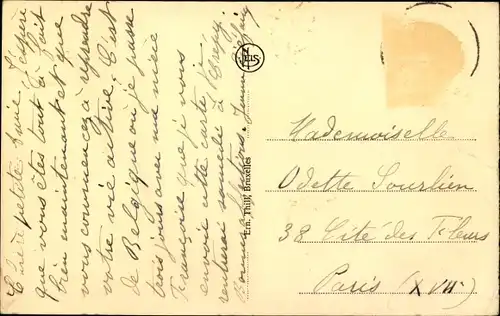 Chère petite amie, J'espère
que vous êtes tout à fait
bien maintenant et que
vous commencez à reprendre
votre vie active. C'est
de Belgique où je passe
trois jours avec ma mère
Françoise que je vous
envoie cette carte. Je
rentrerai samedi à
Bonnes affections.
NELS
Ern. Thill, Bruxelles
Mademoiselle
Odette Sourlien
38 Cité des Fleurs
Paris (XVII